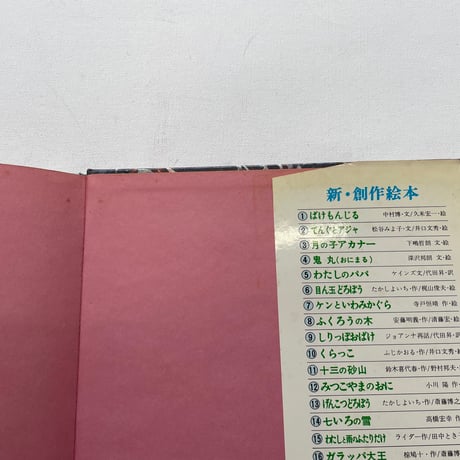 新・創作絵本
①ばけもんじる 中村博・文/久米宏一・絵
②てんぐとアジャ 松谷みよ子・文/井口文秀・絵
③月の子アカナー 下嶋哲朗 文・絵
④鬼丸(おにまる) 深沢邦朗 文・絵
⑤わたしのパパ ケインズ文/代田昇・訳
⑥目ん玉どろぼう たかしよいち・作/梶山俊夫・絵
⑦ケンといわみかぐら 寺戸恒晴 作・絵
⑧ふくろうの木 安藤明義・作/斎藤宏・絵
⑨しりっぽおばけ ジョアンナ再話/代田昇・訳
⑩くらっこ ふじかおる・作/井口文秀・絵
⑪十三の砂山 鈴木喜代春・作/野村邦夫・
⑫みつこやまのおに 小川 陽 作・
⑬げんこつどろぼう たかしよいち・作/斎藤博之
⑭七いろの雪 高橋宏幸 作
⑮わたしと雨のふたりだけ ライダー・作/田中とき
⑯ガラッパ大王 椋鳩十・作/斎藤博